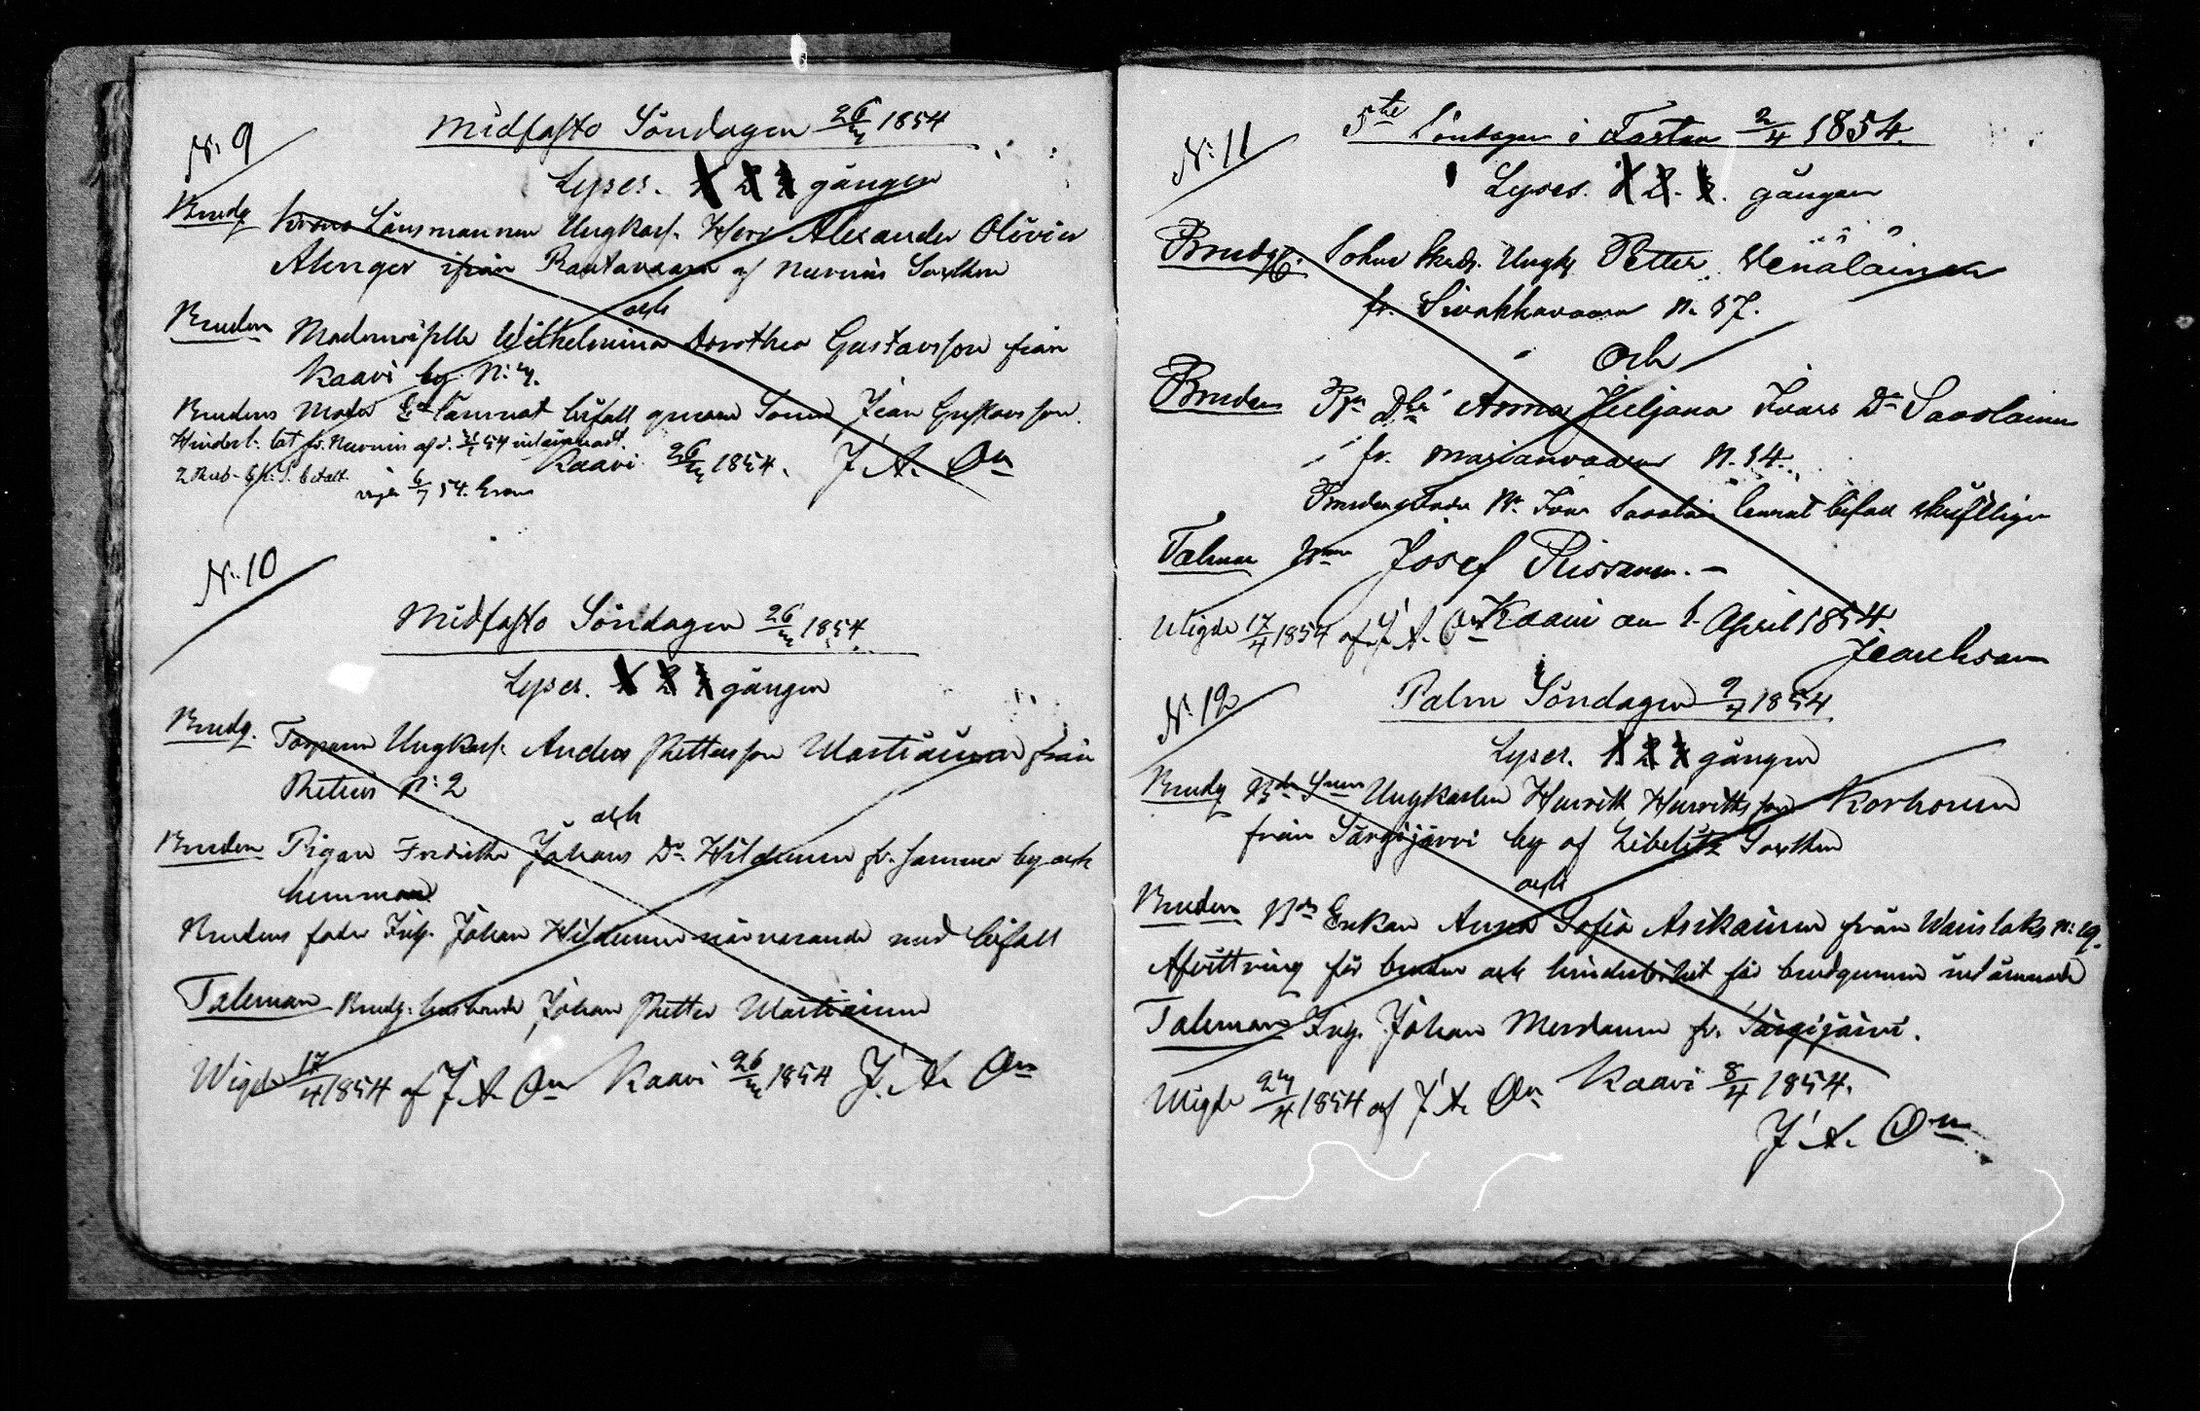 N: 9
Midfasto Söndagen 26/3 1854
Lyses. 1 2 3 gången
Brudg Krono Länsmannen Ungkarl. Herr Alexander Olivier
Alenger ifrån Rautavaara af Nurmis Sockn
och
Bruden Mademoiselle Wilhelmina Dorothea Gustavsson från
Kaavi by N: 3.
Brudens Moder lämnat bifall genom Sonen Jean Gustavsson.
Hinderl: bet. fr. Nurmis af d. 54 inlämnadt
2 Rub. S. betalt Kaavi 26/3 1854. J. A. On
vigde 6/7 54.
N: 10
Midfasto Söndagen 26/3 1854.
Lyses. 1 2 3 gången
Brudg. Torparen Ungkarl. Anders Pettersson Martikainen från
N: 2
och
Bruden Pigan Fredrika Johans Dr. Hildunen fr. by och
hemman
Brudens fader Inh. Johan Hildunen närvarande med bifall
Taleman Brudg. husbonde Johan Petter Martikainen
Wigde 17/4 1854 af J A On Kaavi 26/3 1854 J. A. On
N: 11
5te Söndagen i Fastan 2/4 1854.
Lyses. 1 2. 3. gången
Brudg. Ungk. Petter Venäläinen
fr. Sivakkavaara N. 37.
och
Bruden Anna Juljana Ivars Dr Savolainen
fr. Marianvaara N. 14.
Brudens fader Ivar Savolain lemnat bifall skriftligen
Talman Josef Rissanen. –
Wigde 17/4 1854 af J. A. On Kaavi den 1 April 1854.
N: 12
Palm Söndagen 9/4 1854
Lyses. 1 2 3 gången
Brudg Ungkarlen Henrik Henriksson Korhonen
från Särgijärvi by af Libelitz Sockn
och
Bruden Enkan Anna Sofia Asikainen från Warislaks N: 19.
Afvittring för bruden och hinderbetet för brudgummen inlämnade
Taleman Inh. Johan Merdanen fr. Särgijärvi.
Wigde 23/4 1854 af J A. On Kaavi 8/4 1854.
J. A. On